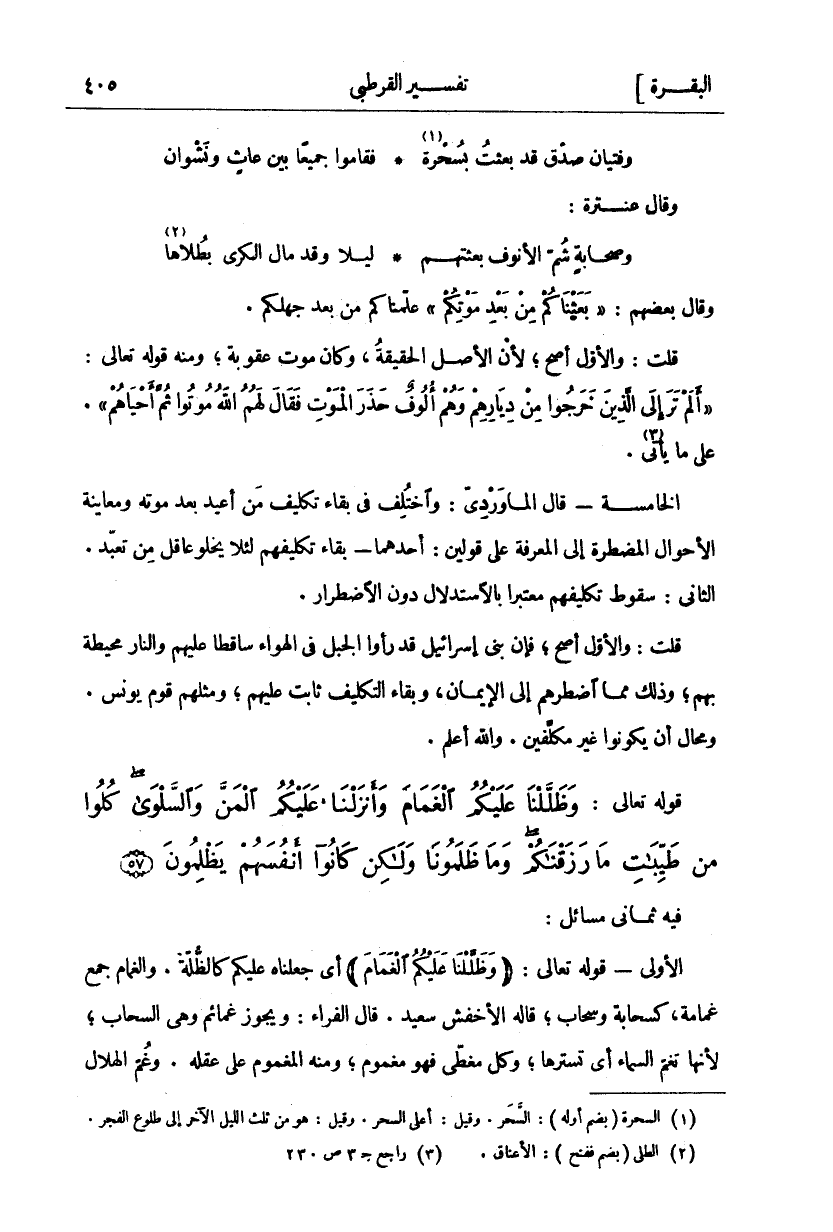 البقـــرة ]
تفســـير القرطبى
٤٠٥
وفتيان صدْق قد بعثتُ بسُحْرة (١) * فقاموا جميعًا بين عاثٍ ونَشْوان
وقال عنـــترة :
وصحـابةٍ شُمّ الأنوف بعثتهـــم * ليـلا وقد مال الكرى بطُلاها (٢)
وقال بعضهم : « بَعَثْنَاكُمْ مِنْ بَعْدِ مَوْتِكُمْ » علّمناكم من بعد جهلكم .
قلت : والأوّل أصح ؛ لأنّ الأصـل الحقيقةُ ، وكان موت عقوبة ؛ ومنه قوله تعالى :
« أَلَمْ تَرَ إِلَى الَّذِينَ خَرَجُوا مِنْ دِيَارِهِمْ وَهُمْ أُلُوفٌ حَذَرَ الْمَوْتِ فَقَالَ لَهُمُ اللهُ مُوتُوا ثُمَّ أَحْيَاهُمْ » .
على ما يأتى (٣) .
الخامســـة — قال المـاوَرْدِىّ : وٱختُلِف فى بقاء تكليف مَن أعيد بعد موته ومعاينة
الأحوال المضطرة إلى المعرفة على قولين : أحدهما — بقاء تكليفهم لئلا يخلو عاقل مِن تعبّد .
الثانى : سقوط تكليفهم معتبرا بالٱستدلال دون الٱضطرار .
قلت : والأوّل أصح ؛ فإن بنى إسرائيل قد رأوا الجبل فى الهواء ساقطا عليهم والنار محيطة
بهم ؛ وذلك ممـا ٱضطرهم إلى الإيمـان ، وبقاء التكليف ثابت عليهم ؛ ومثلهم قوم يونس .
ومحال أن يكونوا غير مكلّفين . والله أعلم .
قوله تعالى : وَظَلَّلْنَا عَلَيْكُمُ ٱلْغَمَامَ وَأَنزَلْنَا عَلَيْكُمُ ٱلْمَنَّ وَٱلسَّلْوَىٰۖ كُلُوا
مِن طَيِّبَٰتِ مَا رَزَقْنَٰكُمْۖ وَمَا ظَلَمُونَا وَلَٰكِن كَانُوٓا أَنفُسَهُمْ يَظْلِمُونَ ٥٧
فيه ثمـانى مسائل :
الأولى — قوله تعالى : ( وَظَلَّلْنَا عَلَيْكُمُ ٱلْغَمَامَ ) أى جعلناه عليكم كالظُّلّة . والغمام جمع
غمامة ، كسحابة وسحاب ؛ قاله الأخفش سعيد . قال الفراء : ويجوز غمائم وهى السحاب ؛
لأنها تغمّ السماء أى تسترها ؛ وكل مغطّى فهو مغموم ؛ ومنه المغموم على عقله . وغُمّ الهلال
(١) السحرة ( بضم أوله ) : السَّحَر . وقيل : أعلى السحر . وقيل : هو من ثلث الليل الآخر إلى طلوع الفجر .
(٢) الطلى ( بضم ففتح ) : الأعناق .
(٣) راجع جـ ٣ ص ٢٣٠